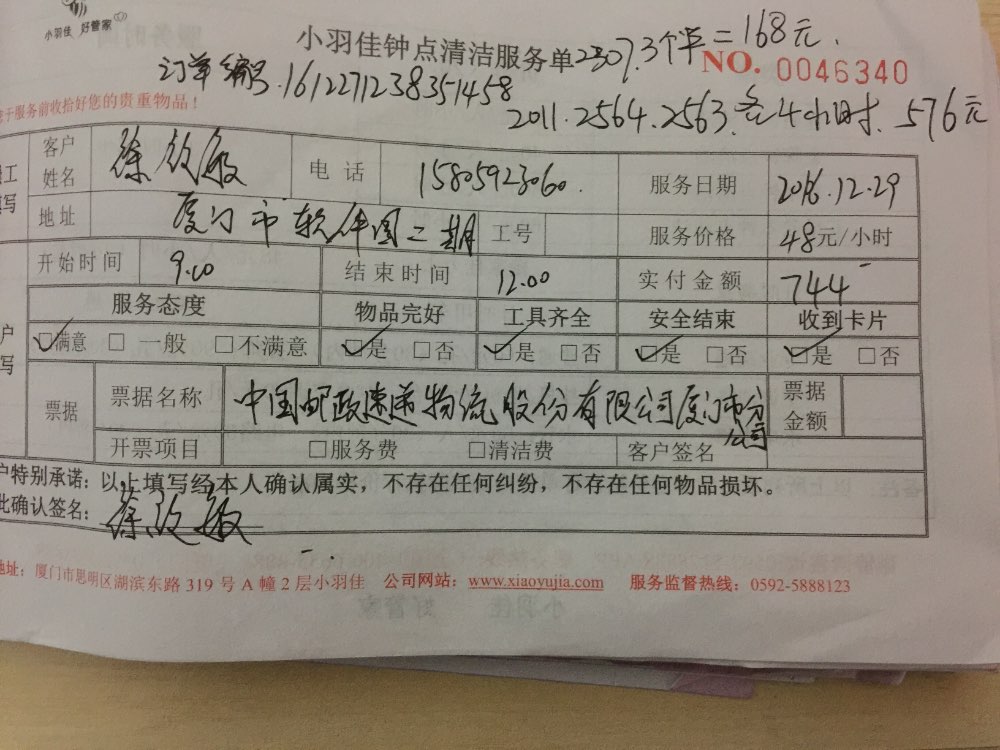 小羽佳 好管家
小羽佳钟点清洁服务单2307.3个半=168元.
NO. 0046340
订单编号.161227123835 1458
2011.2564.2563.各4小时.576元
于服务前收拾好您的贵重物品！
客户姓名 徐 敏 电话 15805923060. 服务日期 2016.12.29
地址 厦门市软件园二期 工号 服务价格 48元/小时
开始时间 9.00 结束时间 12.00 实付金额 744
服务态度 物品完好 工具齐全 安全结束 收到卡片
☑满意 □一般 □不满意 ☑是 □否 ☑是 □否 ☑是 □否 ☑是 □否
票据 票据名称 中国邮政速递物流股份有限公司厦门市分公司 票据金额
开票项目 □服务费 □清洁费 客户签名
户特别承诺：以上填写经本人确认属实，不存在任何纠纷，不存在任何物品损坏。
此确认签名：徐 敏
地址：厦门市思明区湖滨东路 319 号 A 幢 2 层小羽佳 公司网站：www.xiaoyujia.com 服务监督热线：0592-5888123